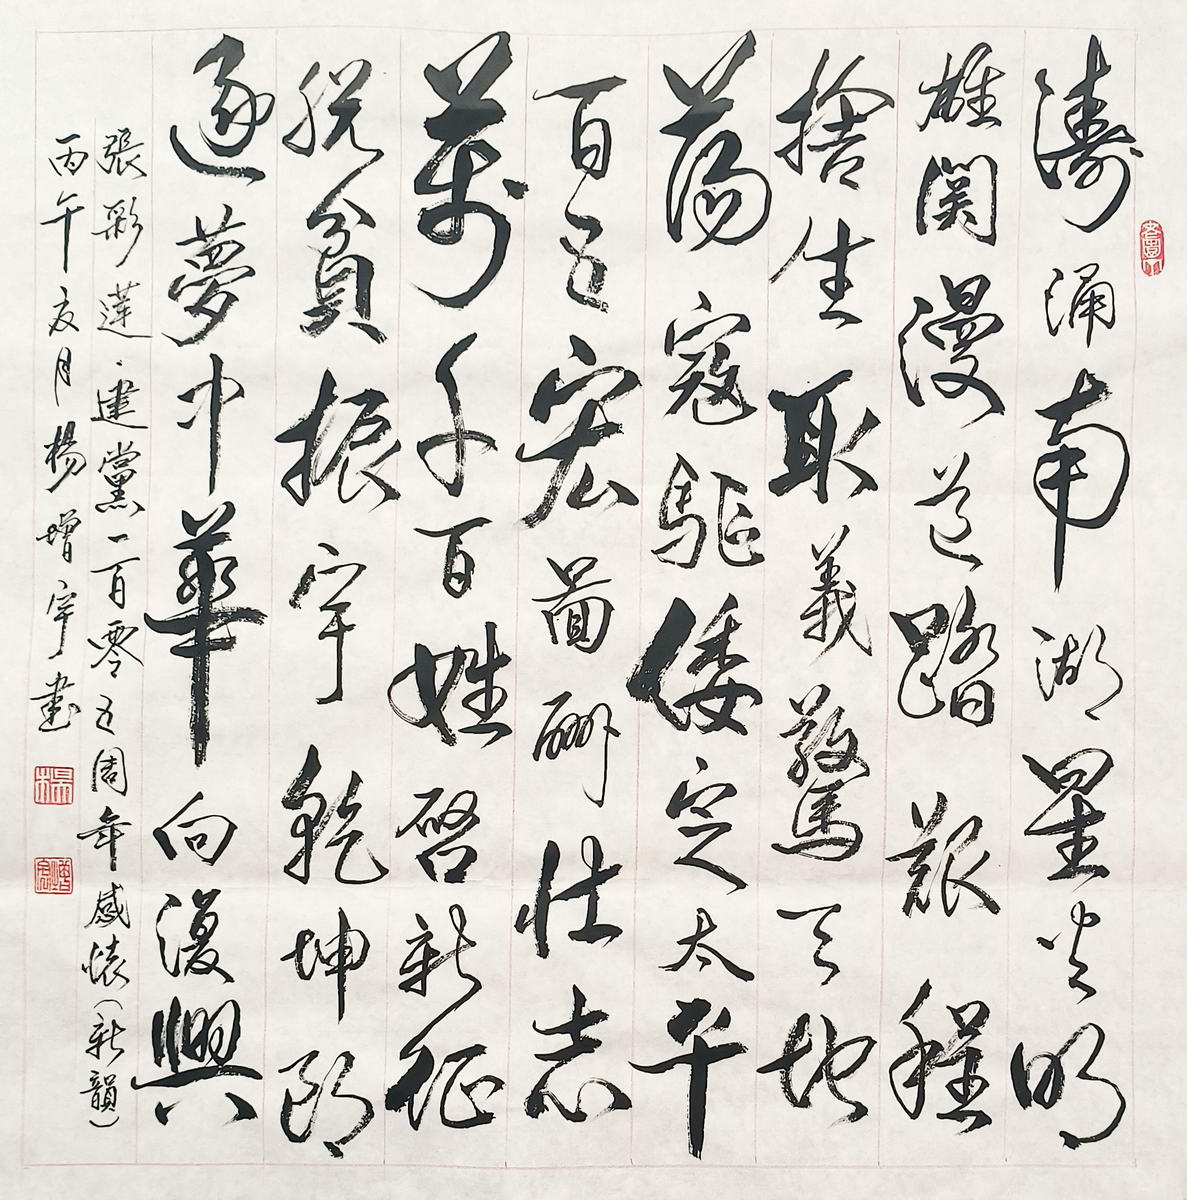 濤涌南湖星火明
雄関漫道踏艱程
捨生取義驚天地
蕩寇駈倭定太平
百五宏圖酬壮志
萬千百姓啓新征
脱貧振宇乾坤朗
逐夢中華向復興
張彩蓮·建黨一百零五周年感懷(新韻)
丙午夏月楊增宇書